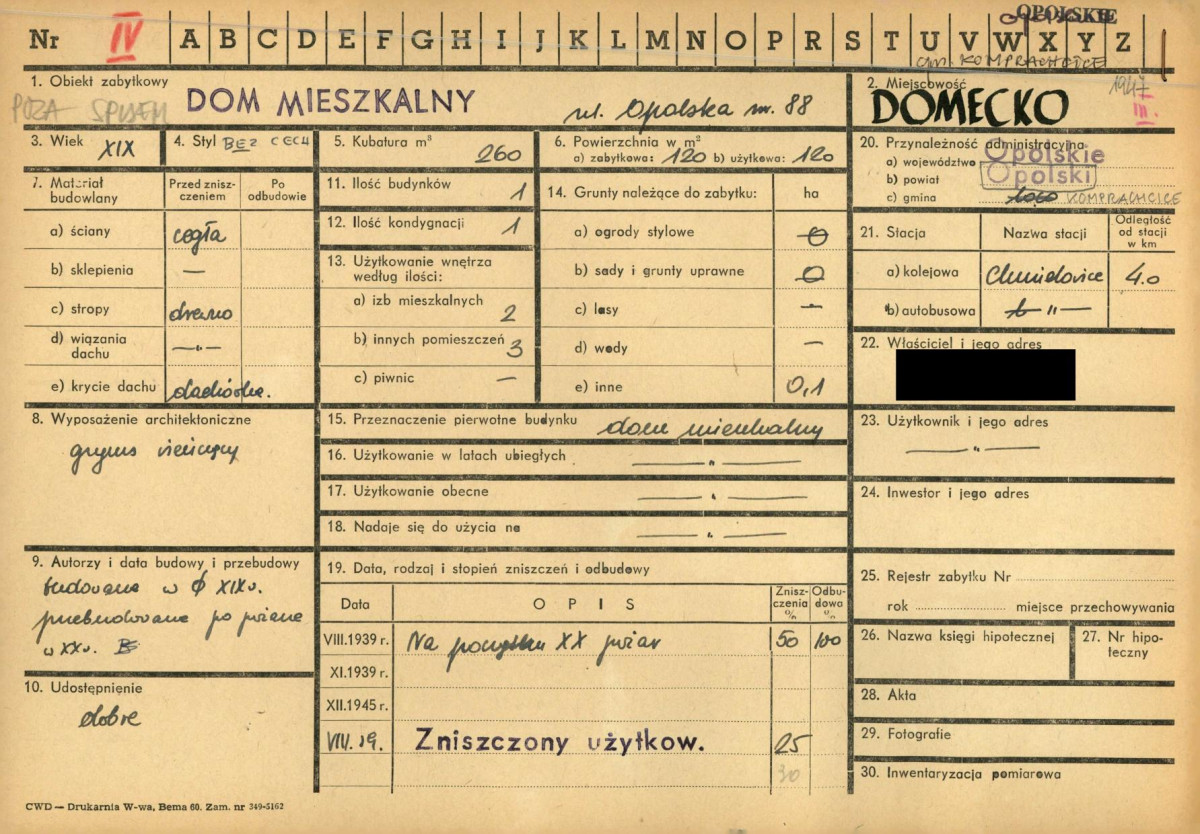 OPOLSKIE
Nr IV A B C D E F G H I J K L M N O P R S T U V W X Y Z
gm. KOMPRACHCICE
1. Obiekt zabytkowy
POZA SPISEM DOM MIESZKALNY ul. Opolska nr. 88
2. Miejscowość 1947
DOMECKO III.
3. Wiek XIX
4. Styl BEZ CECH
5. Kubatura m³ 260
6. Powierzchnia w m²
a) zabytkowa: 120 b) użytkowa: 120
7. Materiał budowlany
Przed zniszczeniem
Po odbudowie
a) ściany cegła
b) sklepienia —
c) stropy drewno
d) wiązania dachu —„—
e) krycie dachu dachówka.
8. Wyposażenie architektoniczne
gzyms wieńczący
9. Autorzy i data budowy i przebudowy
budowane w XIX w.
przebudowane po pożarze
w XX w.
10. Udostępnienie
dobre
11. Ilość budynków 1
12. Ilość kondygnacji 1
13. Użytkowanie wnętrza
według ilości:
a) izb mieszkalnych 2
b) innych pomieszczeń 3
c) piwnic —
14. Grunty należące do zabytku: ha
a) ogrody stylowe 0
b) sady i grunty uprawne 0
c) lasy —
d) wody —
e) inne 0,1
15. Przeznaczenie pierwotne budynku dom mieszkalny
16. Użytkowanie w latach ubiegłych —„—
17. Użytkowanie obecne —„—
18. Nadaje się do użycia na —„—
19. Data, rodzaj i stopień zniszczeń i odbudowy
Data OPIS Zniszczenia % Odbudowa %
VIII.1939 r. Na początku XX pożar 50 100
XI.1939 r.
XII.1945 r.
VIII.59. Zniszczony użytkow. 25
30
20. Przynależność administracyjna
a) województwo Opolskie
b) powiat Opolski
c) gmina KOMPRACHCICE
21. Stacja Nazwa stacji Odległość od stacji w km
a) kolejowa Chmielowice 4.0
b) autobusowa —„—
22. Właściciel i jego adres
23. Użytkownik i jego adres
—„—
24. Inwestor i jego adres
25. Rejestr zabytku Nr
rok miejsce przechowywania
26. Nazwa księgi hipotecznej
27. Nr hipoteczny
28. Akta
29. Fotografie
30. Inwentaryzacja pomiarowa
CWD — Drukarnia W-wa, Bema 60. Zam. nr 349-5162